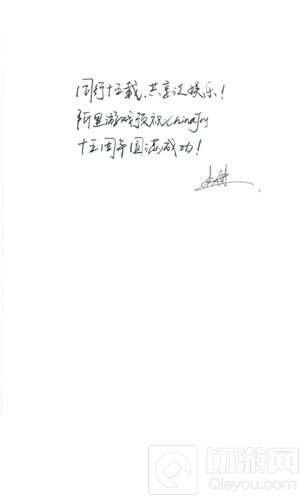 同行十五载,共享泛娱乐!
阿里游戏预祝ChinaJoy
十五周年圆满成功!
切游网
Qieyou.com